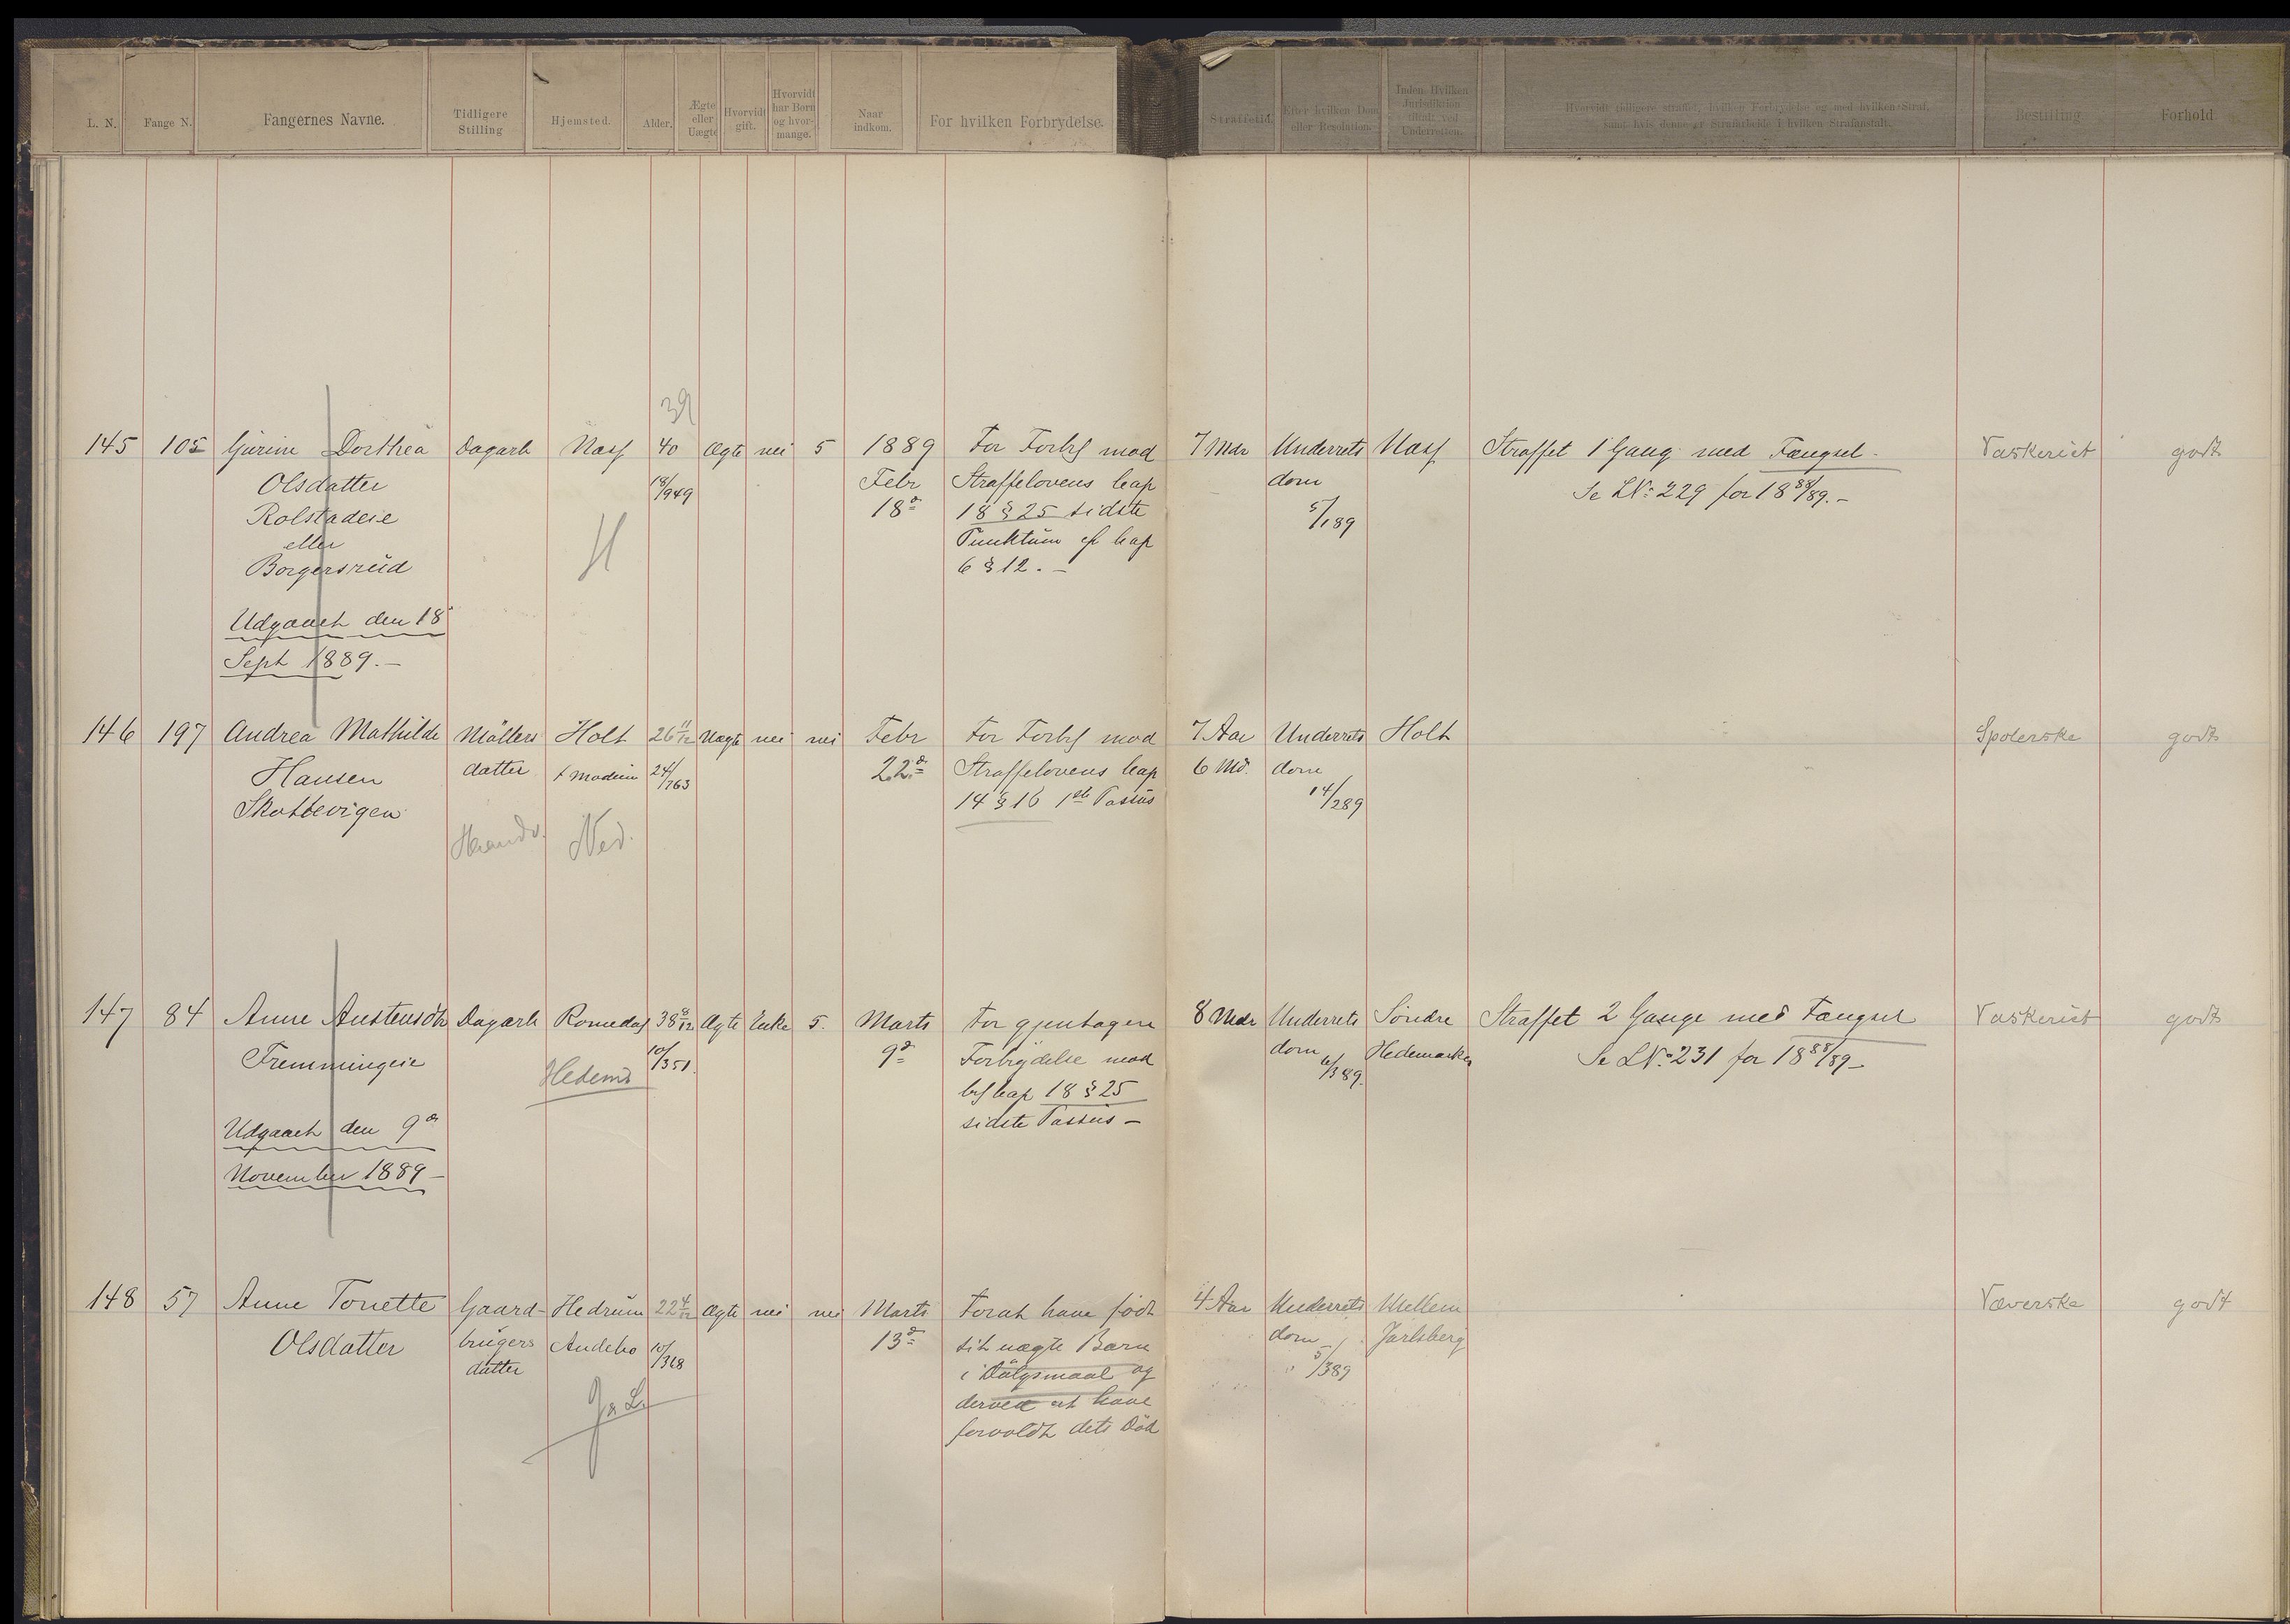 L. N.
Fange N.
Fangernes Navne.
Tidligere
Stilling
Hjemsted.
Alder.
Ægte
eller
Uægte
Hvorvidt
gift.
Hvorvidt
har Børn
og hvor-
mange.
Naar
indkom.
For hvilken Forbrydelse.
Straffetid.
Efter hvilken Dom
eller Resolution.
Inden Hvilken
Jurisdiktion
tiltalt ved
Underretten.
Hvorvidt tidligere straffet, hvilken Forbrydelse og med hvilken Straf,
samt hvis denne er Strafarbeide i hvilken Strafanstalt.
Bestilling
Forhold
39
145 105 Gurine Dorthea Dagarb Næss 40 Ægte nei 5 1889 For Forbs mod 7 Mdr Underrets Næss Straffet 1 Gang med Fængsel. Vaskeriet godt
Olsdatter 18/949 Febr Straffelovens Cap dom Se LNo 229 for 1888/89.-
Rolstadeie 18de 18 § 25 sidste 5/189
eller H Punktum cf Cap
Borgersrud 6 § 12.-
Udgaaet den 18
Sept 1889.-
146 197 Andrea Mathilde Møllers Holt 26 11/12 Uægte nei nei Febr For Forbs mod 7 Aar Underrets Holt Spolerske godt
Hansen datter 24/763 22de Straffelovens Cap 6 Md. dom
Skottevigen 14 § 16 1ste Passus 14/289
Ned.
147 84 Anne Austensdtr Dagarb Romedal 38 Ægte Enke 5. Marts For gjentagen 8 Mdr Underrets Søndre Straffet 2 Gange med Fængsel Vaskeriet godt
Fremmingeie 10/351. 9de Forbrydelse mod dom Hedemarken Se LNo 231 for 1888/89-
Hedem 6/389. Cap 18 § 25
Udgaaet den 9de sidste Passus -
November 1889 -
148 57 Anne Tonette Gaard- Hedrum 22 4/12 Ægte nei nei Marts For at have født 4 Aar Underrets Mellem Væverske godt
Olsdatter brugers Andebo 13de sit uægte Barn dom Jarlsberg
datter i Dølgsmaal og 5/389
J & L. derved at have
forvoldt dets Død